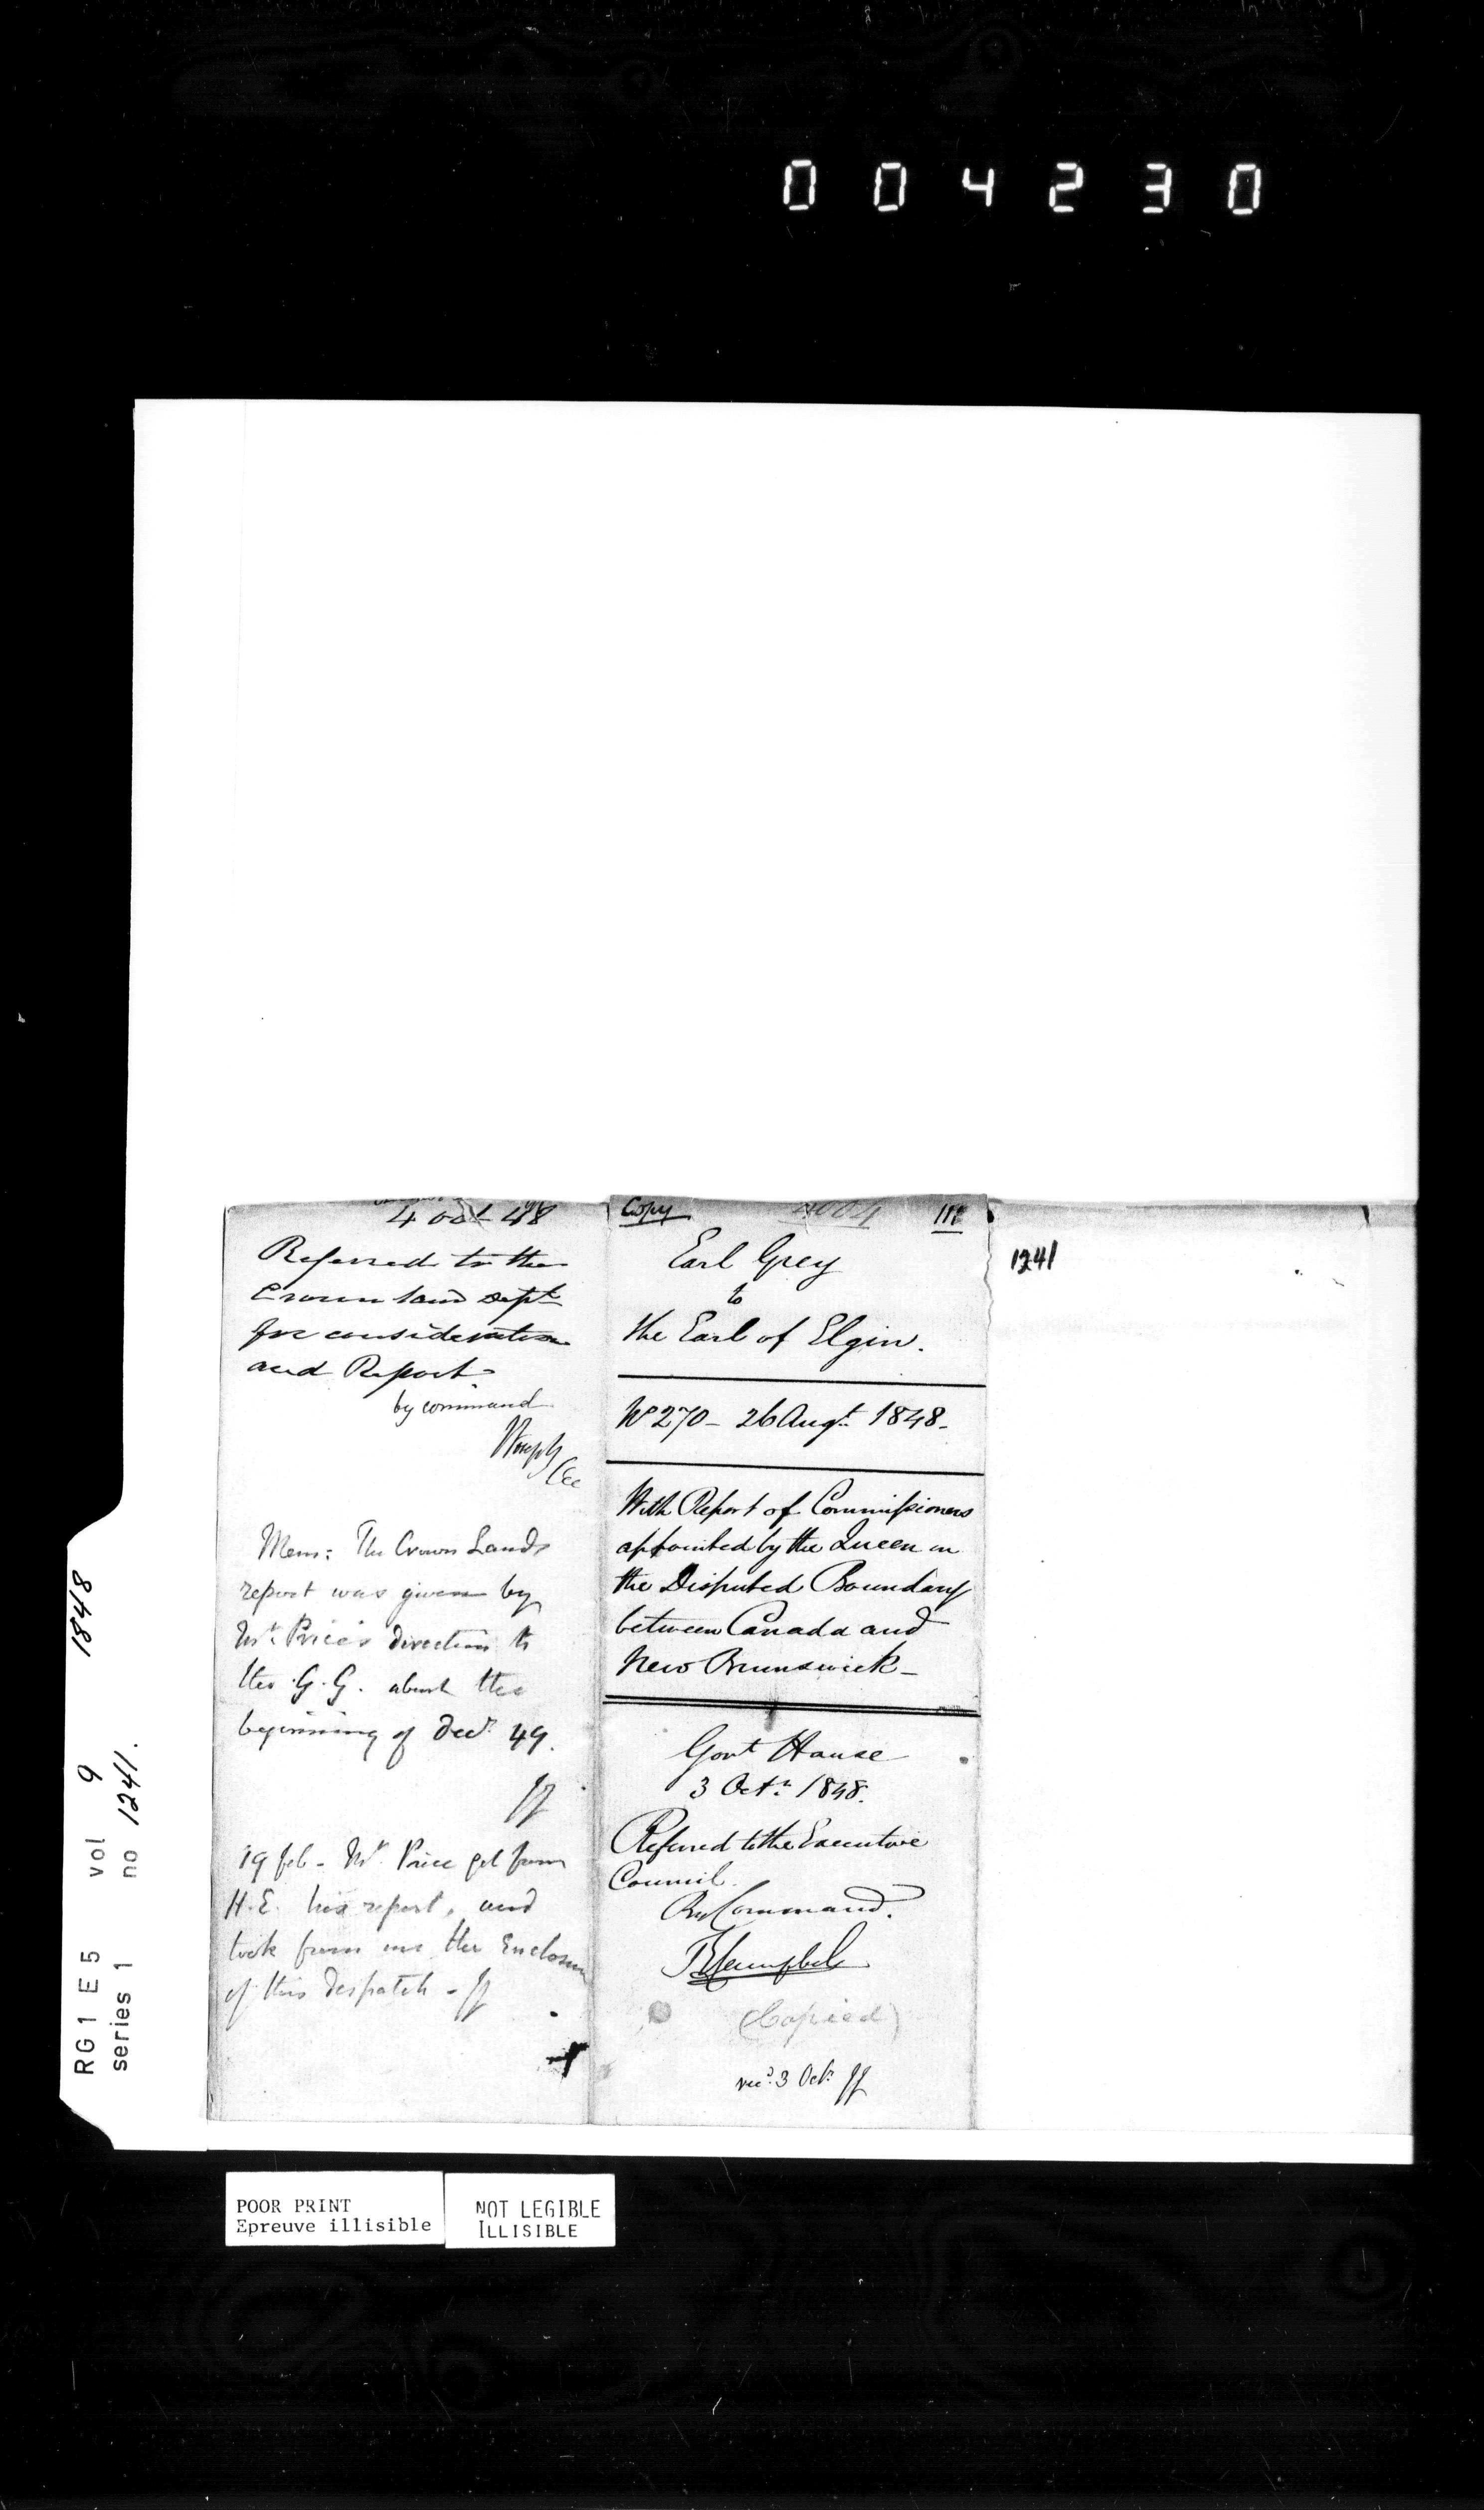 004230
1848
RG1 E5 vol 9
series 1 no 1241.
4 Oct 48
Referred to the
Crown land Dept
for consideration
and Report
by command
CEC
Mem: The Crown Lands
report was given by
Mr. Price's direction to
the G.G. about the
beginning of Decr 49.
JJ
19 feb - Mr. Price got from
H.E. his report, and
took from me the Enclosure
of this despatch - JJ
Copy
Earl Grey
to
the Earl of Elgin.
No 270 - 26 Augt. 1848 -
With Report of Commissioners
appointed by the Queen on
the Disputed Boundary
between Canada and
New Brunswick -
Govt House
3 Octr. 1848.
Referred to the Executive
Council.
By Command.
Campbell
(Copied)
recd. 3 Octr. JJ
1241
POOR PRINT
Epreuve illisible
NOT LEGIBLE
ILLISIBLE